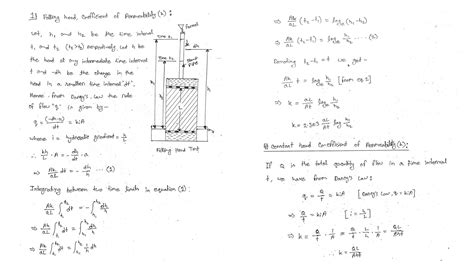 1) Falling head, Coefficient of Permeability (k):
Let, h₁ and h₂ be the time interval
t₁ and t₂ (t₂>t₁) respectively. Let h be
the head at any intermediate time interval
t and -dh be the change in the
head in a smaller time interval "dt".
Hence, from Darcy's law the rate
of flow "q" is given by—
q = (-dh·a)/dt = kiA
where i = hydraulic gradient = h/L
∴ kh/L · A = - dh/dt · a
⇒ Ak/aL dt = - dh/h ··· (1)
Integrating between two time limits in equation (1):
Ak/aL ∫ dt = - ∫ dh/h
⇒ Ak/aL ∫ dt = ∫ dh/h
⇒ Ak/aL ∫ dt = ∫ 1/h dh
Funnel
Time t₁
dh
Stand
Pipe
Time t₂
h₁
h
h₂
L
Falling Head Test
⇒ Ak/aL (t₂-t₁) =
⇒ Ak/aL (t₂-t₁) = log h₁/h₂ ··· (2)
Denoting t₂-t₁ = t we get—
Ak/aL t = log h₁/h₂ [from eq. 2]
⇒ k = aL/At log h₁/h₂
k = 2.303 aL/At log h₁/h₂
Constant head Coefficient of Permeability (k):
If Q is the total quantity of flow in a time interval
t, we have from Darcy's law:
q = Q/t = kiA [Darcy's law, q = kiA]
⇒ Q/t = kiA [i = h/L]
⇒ k = Q/t · 1/i · 1/A = Q/t · L/h · 1/A = QL/Aht
∴ k = QL/Aht